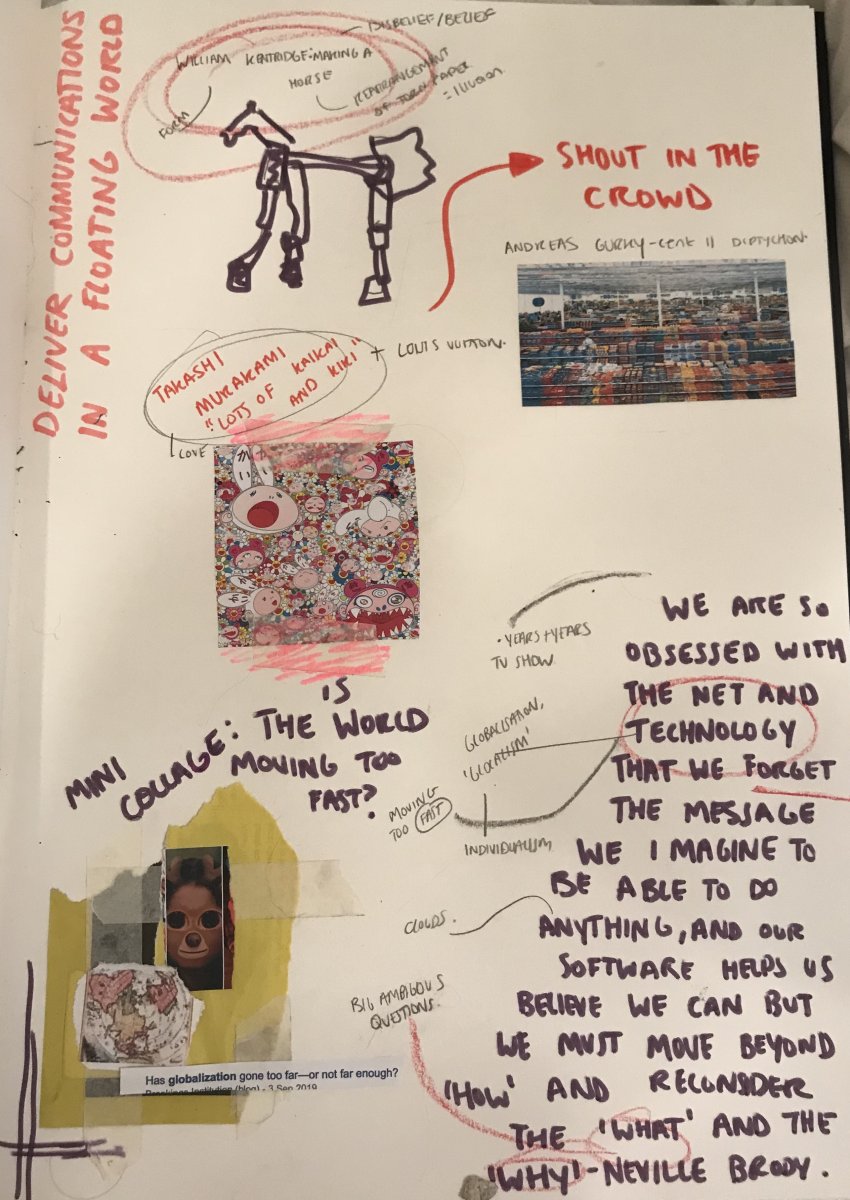 DELIVER COMMUNICATIONS
IN A FLOATING WORLD
DISBELIEF/BELIEF
WILLIAM KENTRIDGE: MAKING A
HORSE
FORM
REARRANGEMENT
OF TORN PAPER
= illusion
SHOUT IN THE
CROWD
ANDREAS GURKY-CENT II DIPTYCHON.
TAKASHI
MURAKAMI
"LOTS OF KAIKAI
AND KIKI"
+ LOUIS VUITTON.
LOVE
MINI
COLLAGE: IS
THE WORLD
MOVING TOO
FAST?
Has globalization gone too far—or not far enough?
Brookings Institution (blog) - 3 Sep 2019
. YEARS + YEARS
TV SHOW
GLOBALISATION,
'GLOCALISM'
MOVING
TOO FAST
INDIVIDUALISM
CLOUDS.
BIG AMBIGOUS
QUESTIONS.
WE ARE SO
OBSESSED WITH
THE NET AND
TECHNOLOGY
THAT WE FORGET
THE MESSAGE
WE IMAGINE TO
BE ABLE TO DO
ANYTHING, AND OUR
SOFTWARE HELPS US
BELIEVE WE CAN BUT
WE MUST MOVE BEYOND
'HOW' AND RECONSIDER
THE 'WHAT' AND THE
'WHY' - NEVILLE BRODY.